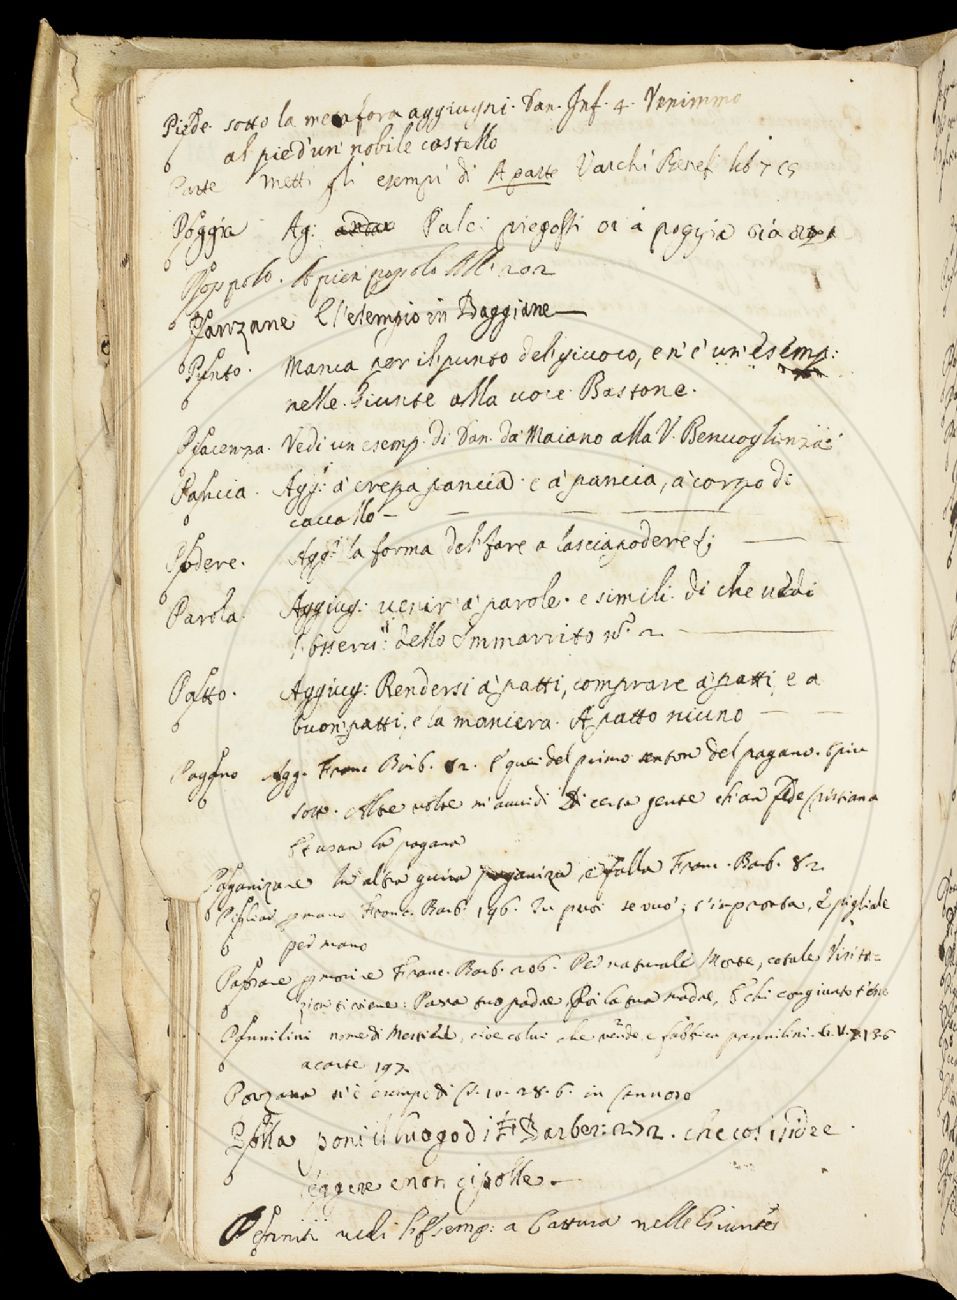 Piede. sotto la metafora aggiugni. Dan. Inf. 4. Venimmo
al piè d'un nobile castello
Parte metti gli esempi di A parte Varchi Benef. lib 7 c 9
Poggia Ag: piegossi or a poggia
Popolo. A pien popolo All. 202
Panzane E l'esempio in Baggiane
Punto. Manca per il punto del giuoco, e n'è un esemp:
nelle Giunte alla voce Bastone.
Piacenza. Vedi un esemp. di Dan. da Maiano alla V. Benvoglienza
Pancia. Agg: a crepa pancia. e a pancia, a corpo di
cavallo
Podere. Agg: la forma del fare a lascia podere
Parola. Aggiug: venir a parole. e simili. di che vedi
l'osserv: dello Smarrito n.° 2
Patto. Aggiug: Rendersi a patti, comprare a patti, e a
buon patti, e la maniera. A patto niuno
Pagano Agg. Franc Barb. 82. E quei del primo del pagano. E più
sotto. Altre volte m'avvidi Di certa gente ch'an fede Cristiana
Et usan la pagana
Paganizare In altra guisa paganiza, e falla Franc. Barb. 82.
Pigliar per mano Franc. Barb. 196. Tu puoi se vuo'; s'impronta, E pigliale
per mano
Passare per morire Franc. Barb. 206. Per naturale Morte, cotale Visita=
zion ti viene: Passa tuo padre, Poi la tua madre, E chi congiunto t'era
Pannilini nome di Mestiere, cioè colui che vende, e fabbrica pannilini. 136
a carte 197
Ponzare v'è esempio di 10. 28. 6. in
poni il luogo di Fr: Barber: 272. che così si dee
leggere e non cipolle.
vedi l'Esemp: a Cattura nelle Giunte